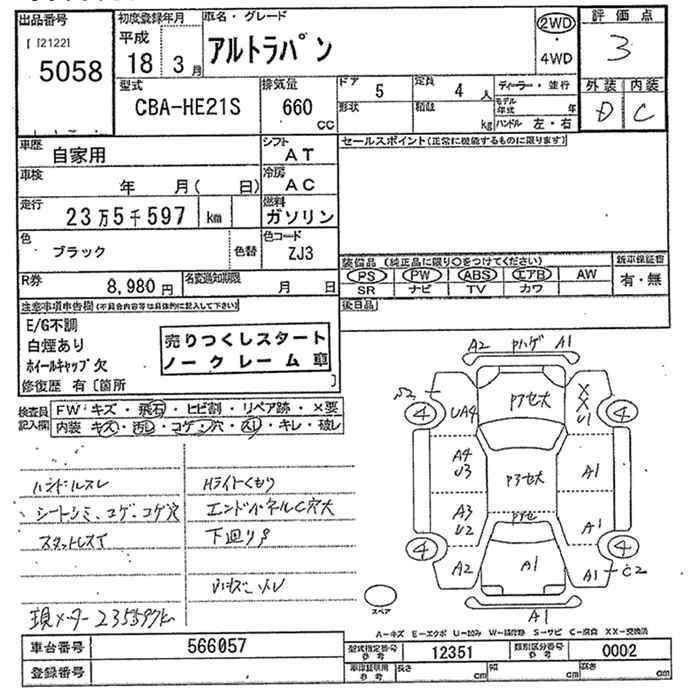 出品番号
[ [2122]
5058
初度登録年月
平成
18 3月
車名・グレード
アルトラパン
2WD
・
4WD
評価点
3
外装 内装
D C
型式
CBA-HE21S
排気量
660
cc
ドア
5
定員
4 人
形状
積載
kg
ディーラー・並行
モデル年式 年
ハンドル 左・右
車歴
自家用
シフト
AT
車検
年 月( 日)
冷房
AC
走行
23万5千597 km
燃料
ガソリン
色
ブラック
色替
色コード
ZJ3
R券
8,980円
名変通知期限
月 日
セールスポイント(正常に機能するものに限ります)
装備品 (純正品に限り○をつけてください)
PS PW ABS エアB AW
SR ナビ TV カワ
新車保証書
有・無
後日品
注意事項申告欄(不具合内容等は具体的に記入して下さい)
E/G不調
白煙あり
ホイールキャップ欠
修復歴 有〔箇所 〕
売りつくしスタート
ノークレーム車
検査員
記入欄
FW キズ・飛石・ヒビ割・リペア跡・×要
内装 キズ・汚レ・コゲ・穴・スレ・キレ・破レ
ハンドルスレ
シートシミ、コゲ、コゲ穴
スタットレスT
現メーター235597k
Hライトくもり
エンドパネルC穴大
下回りS
A2 Pハゲ A1
S2
4
UA4
P7セ大
XX
U1
4
A4
U3
A1
P3セ大
A3
U2
A1
P7セ
4
A2
A1
A1
C2
4
A1
スペア
A―キズ E―エクボ U―凹み W―補修跡 S―サビ C―腐食 XX―交換済
車台番号
566057
型式指定番号
参考
12351
類別区分番号
参考
0002
登録番号
車庫証明用
参考
長さ cm
幅 cm
高さ cm